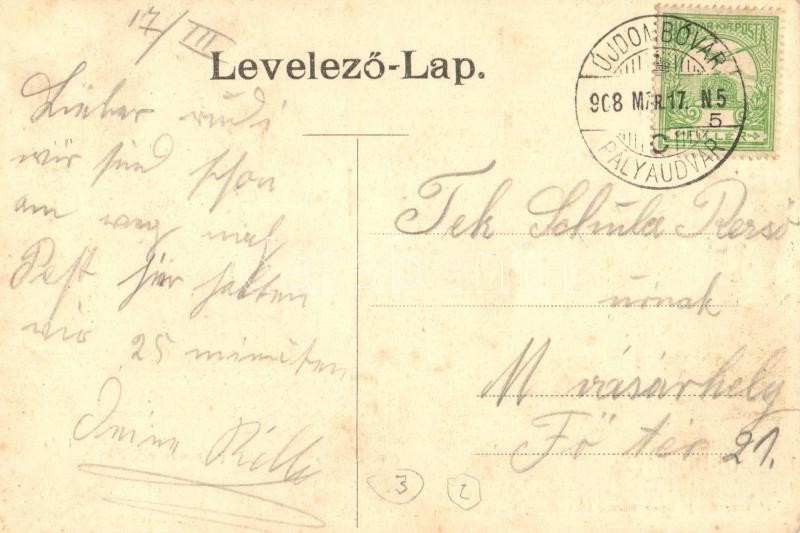 17/III
Levelező-Lap.
ÚJDOMBÓVÁR
908 MÁR.17. N5
C
PÁLYAUDVAR
MAGY. KIR. POSTA
5
FILLÉR
Lieber rudi
wir sind schon
am weg nach
Pest hier halten
wir 25 minuten
Deine
Tek Schula Rezső
úrnak
M vásárhely
Fő tér 21.
3 2
darabanth